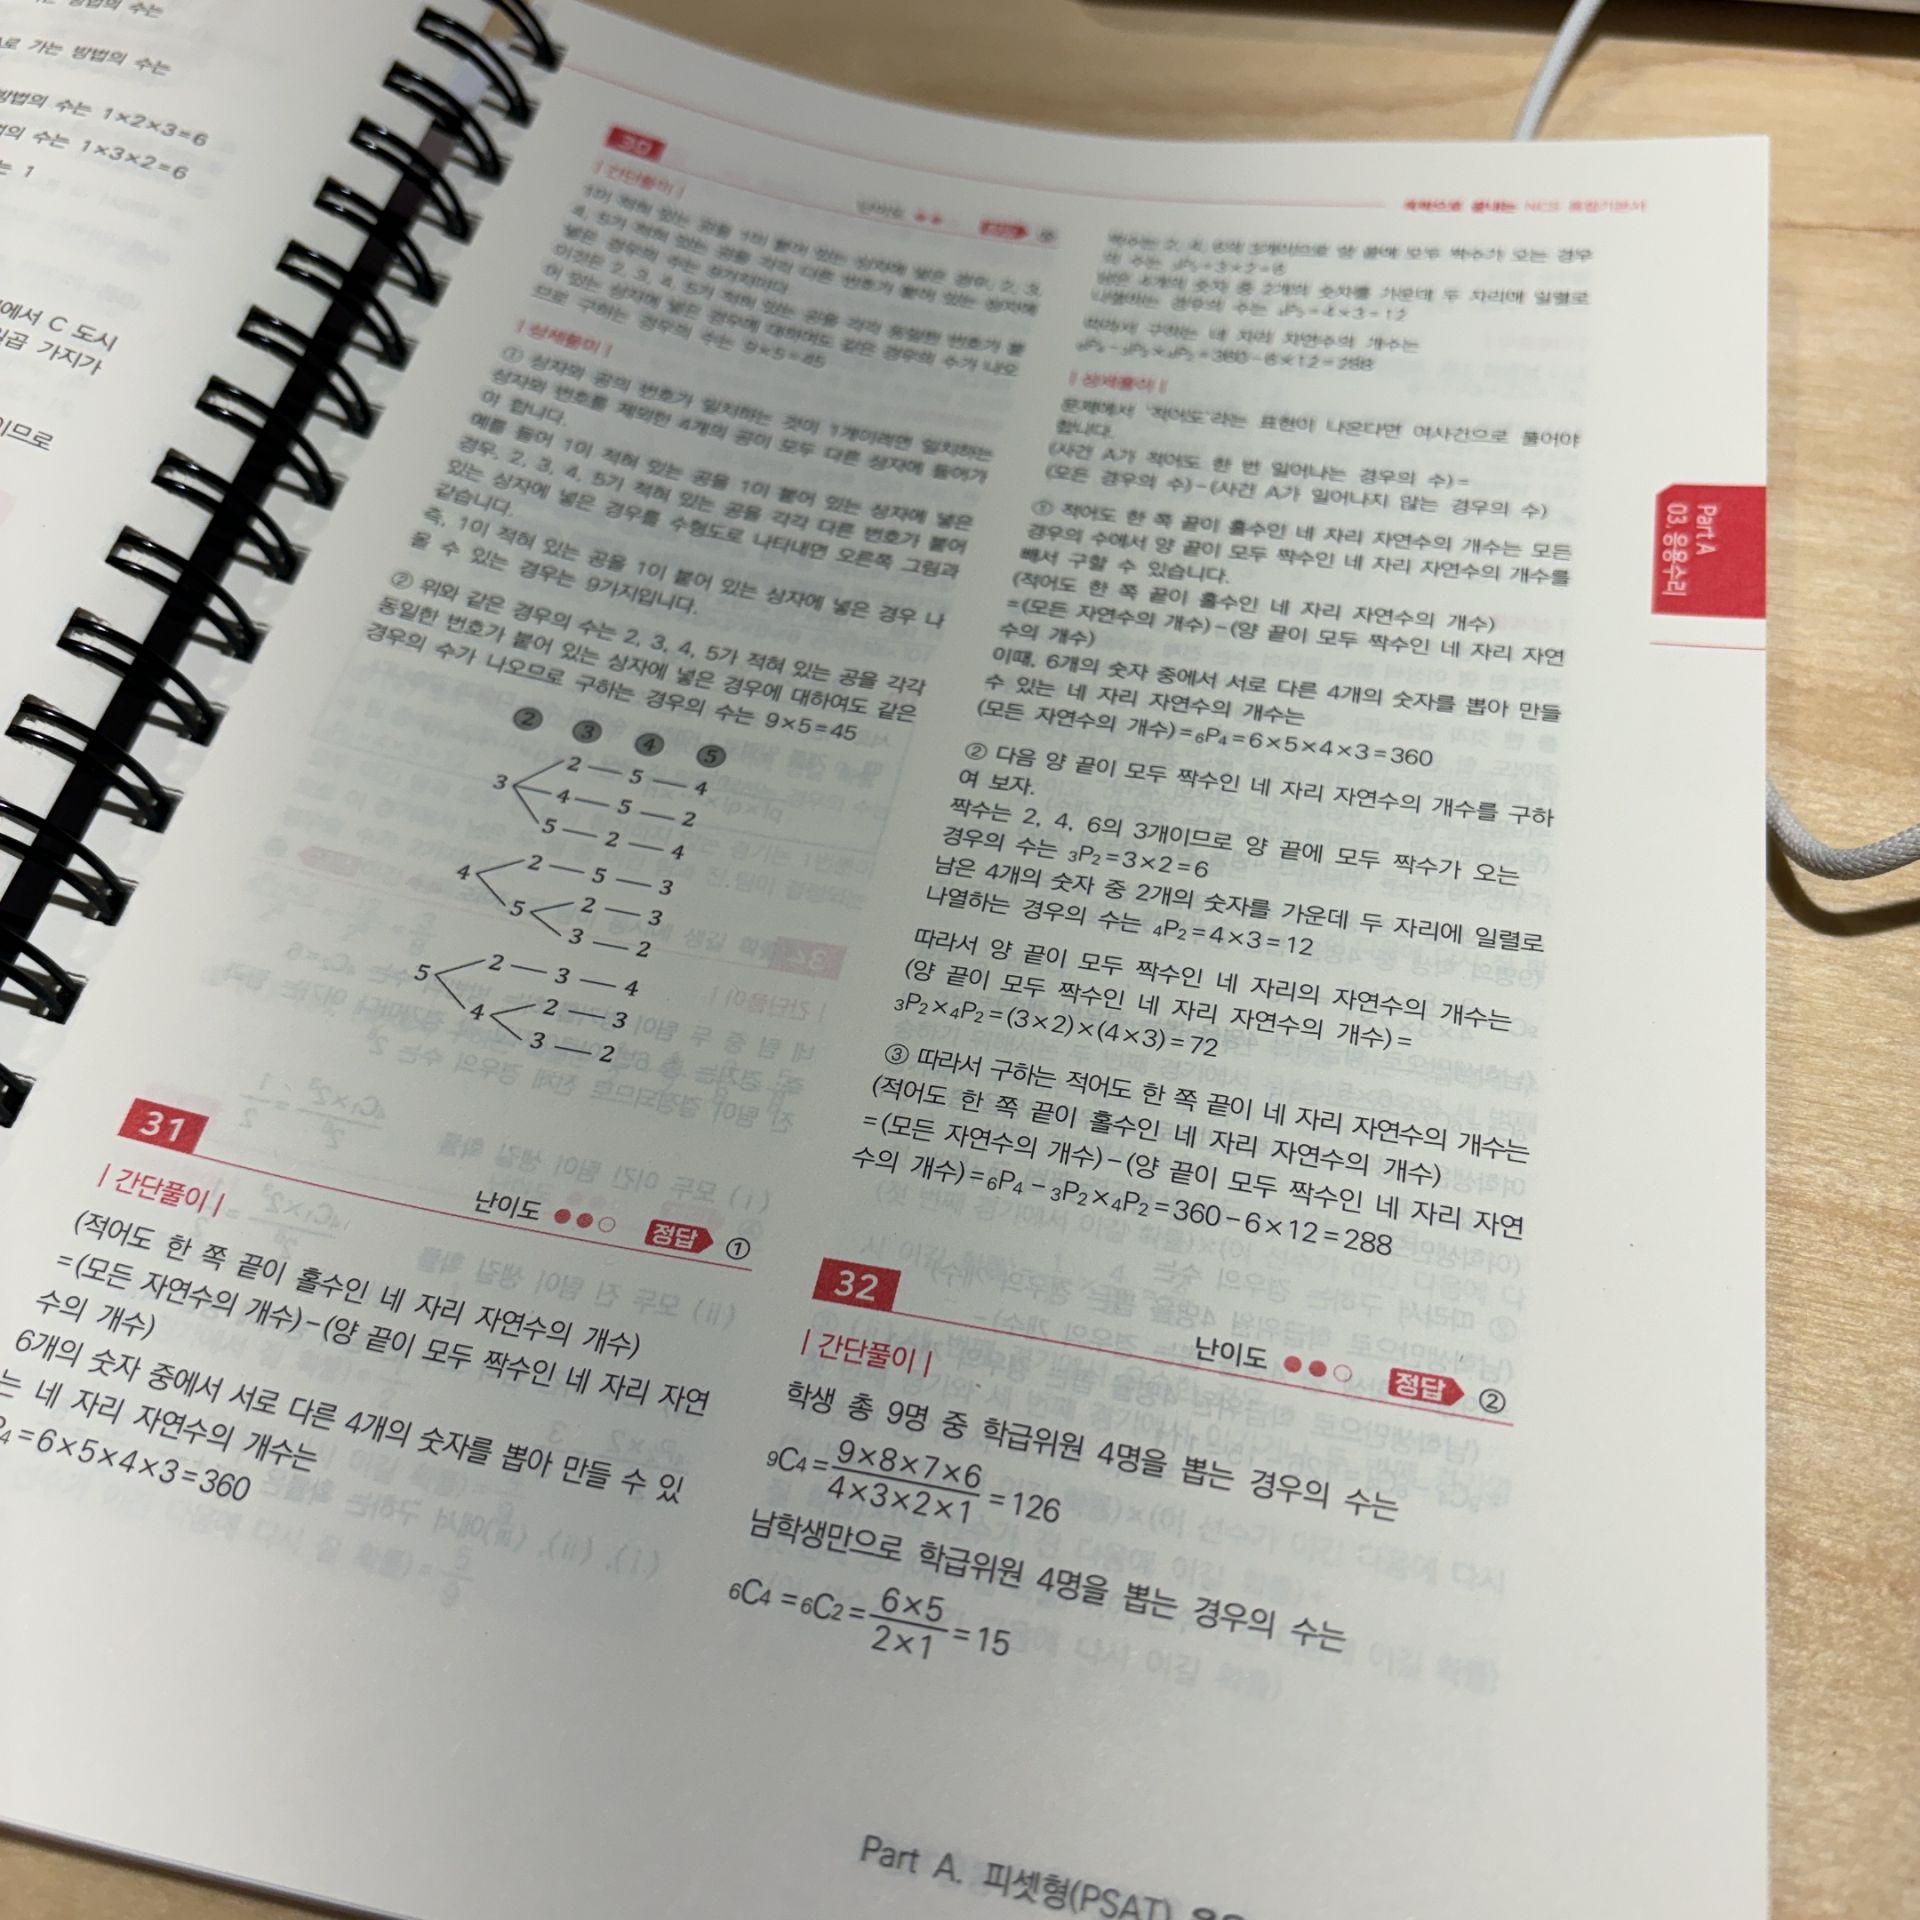 방법의 수는
로 가는 방법의 수는
방법의 수는 1×2×3=6
수는 1×3×2=6
1
에서 C 도시
일곱 가지가
이므로
30
| 간단풀이 |
1이 적혀 있는 공을 1이 붙어 있는 상자에 넣은 경우, 2, 3,
4, 5가 적혀 있는 공을 각각 다른 번호가 붙어 있는 상자에
넣은 경우의 수는 9가지이다.
이것은 2, 3, 4, 5가 적혀 있는 공을 각각 동일한 번호가 붙
어 있는 상자에 넣은 경우에 대하여도 같은 경우의 수가 나오
므로 구하는 경우의 수는 9×5=45
| 상세풀이 |
① 상자와 공의 번호가 일치하는 것이 1개이려면 일치하는
상자와 번호를 제외한 4개의 공이 모두 다른 상자에 들어가
야 합니다.
예를 들어 1이 적혀 있는 공을 1이 붙어 있는 상자에 넣은
경우, 2, 3, 4, 5가 적혀 있는 공을 각각 다른 번호가 붙어
있는 상자에 넣은 경우를 수형도로 나타내면 오른쪽 그림과
같습니다.
즉, 1이 적혀 있는 공을 1이 붙어 있는 상자에 넣은 경우 나
올 수 있는 경우는 9가지입니다.
② 위와 같은 경우의 수는 2, 3, 4, 5가 적혀 있는 공을 각각
동일한 번호가 붙어 있는 상자에 넣은 경우에 대하여도 같은
경우의 수가 나오므로 구하는 경우의 수는 9×5=45
2 3 4 5
3 2 — 5 — 4
4 — 5 — 2
5 — 2 — 4
4 2 — 5 — 3
5 2 — 3
3 — 2
5 2 — 3 — 4
4 2 — 3
3 — 2
31
난이도 ●●○ 정답 ①
| 간단풀이 |
(적어도 한 쪽 끝이 홀수인 네 자리 자연수의 개수)
=(모든 자연수의 개수)-(양 끝이 모두 짝수인 네 자리 자연
수의 개수)
6개의 숫자 중에서 서로 다른 4개의 숫자를 뽑아 만들 수 있
는 네 자리 자연수의 개수는
P₄=6×5×4×3=360
짝수는 2, 4, 6의 3개이므로 양 끝에 모두 짝수가 오는 경우
의 수는 ₃P₂=3×2=6
남은 4개의 숫자 중 2개의 숫자를 가운데 두 자리에 일렬로
나열하는 경우의 수는 ₄P₂=4×3=12
따라서 구하는 네 자리 자연수의 개수는
₆P₄-₃P₂×₄P₂=360-6×12=288
| 상세풀이 |
문제에서 '적어도'라는 표현이 나온다면 여사건으로 풀어야
합니다.
(사건 A가 적어도 한 번 일어나는 경우의 수)=
(모든 경우의 수)-(사건 A가 일어나지 않는 경우의 수)
① 적어도 한 쪽 끝이 홀수인 네 자리 자연수의 개수는 모든
경우의 수에서 양 끝이 모두 짝수인 네 자리 자연수의 개수를
빼서 구할 수 있습니다.
(적어도 한 쪽 끝이 홀수인 네 자리 자연수의 개수)
=(모든 자연수의 개수)-(양 끝이 모두 짝수인 네 자리 자연
수의 개수)
이때, 6개의 숫자 중에서 서로 다른 4개의 숫자를 뽑아 만들
수 있는 네 자리 자연수의 개수는
(모든 자연수의 개수)=₆P₄=6×5×4×3=360
② 다음 양 끝이 모두 짝수인 네 자리 자연수의 개수를 구하
여 보자.
짝수는 2, 4, 6의 3개이므로 양 끝에 모두 짝수가 오는
경우의 수는 ₃P₂=3×2=6
남은 4개의 숫자 중 2개의 숫자를 가운데 두 자리에 일렬로
나열하는 경우의 수는 ₄P₂=4×3=12
따라서 양 끝이 모두 짝수인 네 자리의 자연수의 개수는
(양 끝이 모두 짝수인 네 자리 자연수의 개수)=
₃P₂×₄P₂=(3×2)×(4×3)=72
③ 따라서 구하는 적어도 한 쪽 끝이 네 자리 자연수의 개수는
(적어도 한 쪽 끝이 홀수인 네 자리 자연수의 개수)
=(모든 자연수의 개수)-(양 끝이 모두 짝수인 네 자리 자연
수의 개수)=₆P₄-₃P₂×₄P₂=360-6×12=288
32
난이도 ●●○ 정답 ②
| 간단풀이 |
학생 총 9명 중 학급위원 4명을 뽑는 경우의 수는
₉C₄=9×8×7×6/4×3×2×1=126
남학생만으로 학급위원 4명을 뽑는 경우의 수는
₆C₄=₆C₂=6×5/2×1=15
Part A
03. 응용수리
Part A. 피셋형(PSAT)